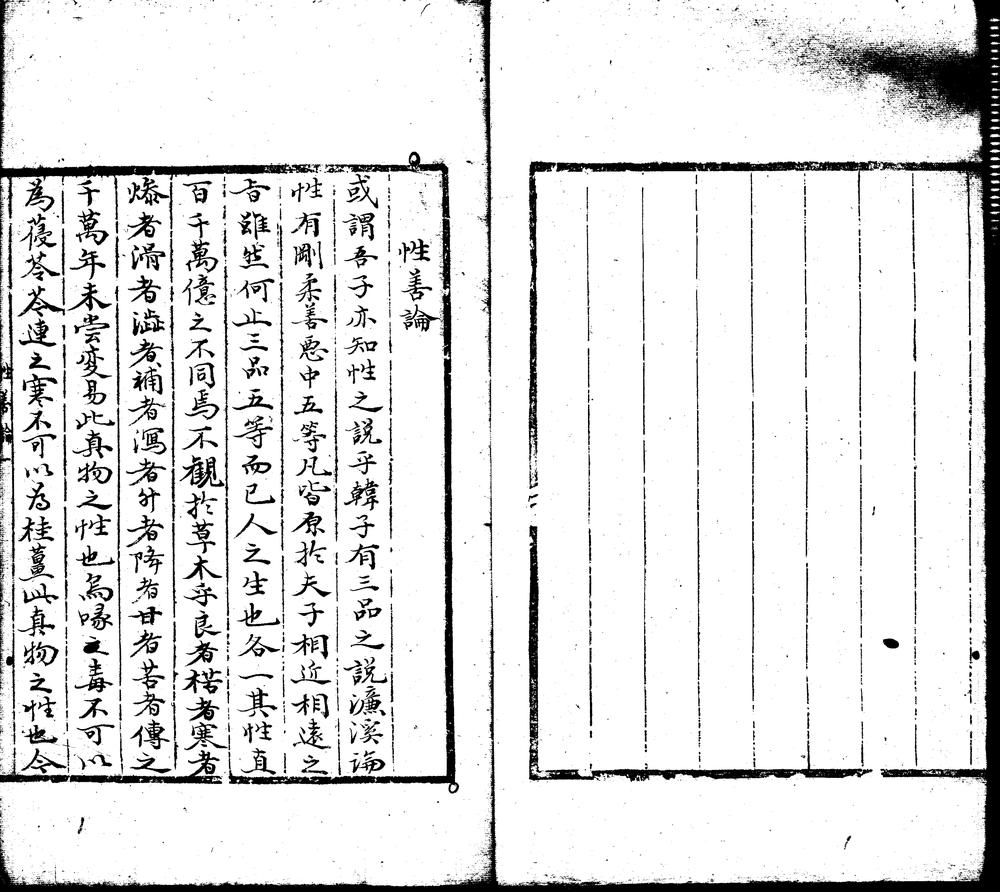 性善論
或謂吾子亦知性之説乎韓子有三品之説濂溪論
性有剛柔善悪中五等凡皆原於夫子相近相遠之
旨雖然何止三品五等而已人之生也各一其性直
百千萬億之不同焉不観於草木乎良者楛者寒者
燥者滑者澁者補者瀉者升者降者甘者苦者傳之
千萬年未嘗変易此真物之性也烏喙之毒不可以
為葠苓苓連之寒不可以为桂薑此真物之性也今
性善論 一